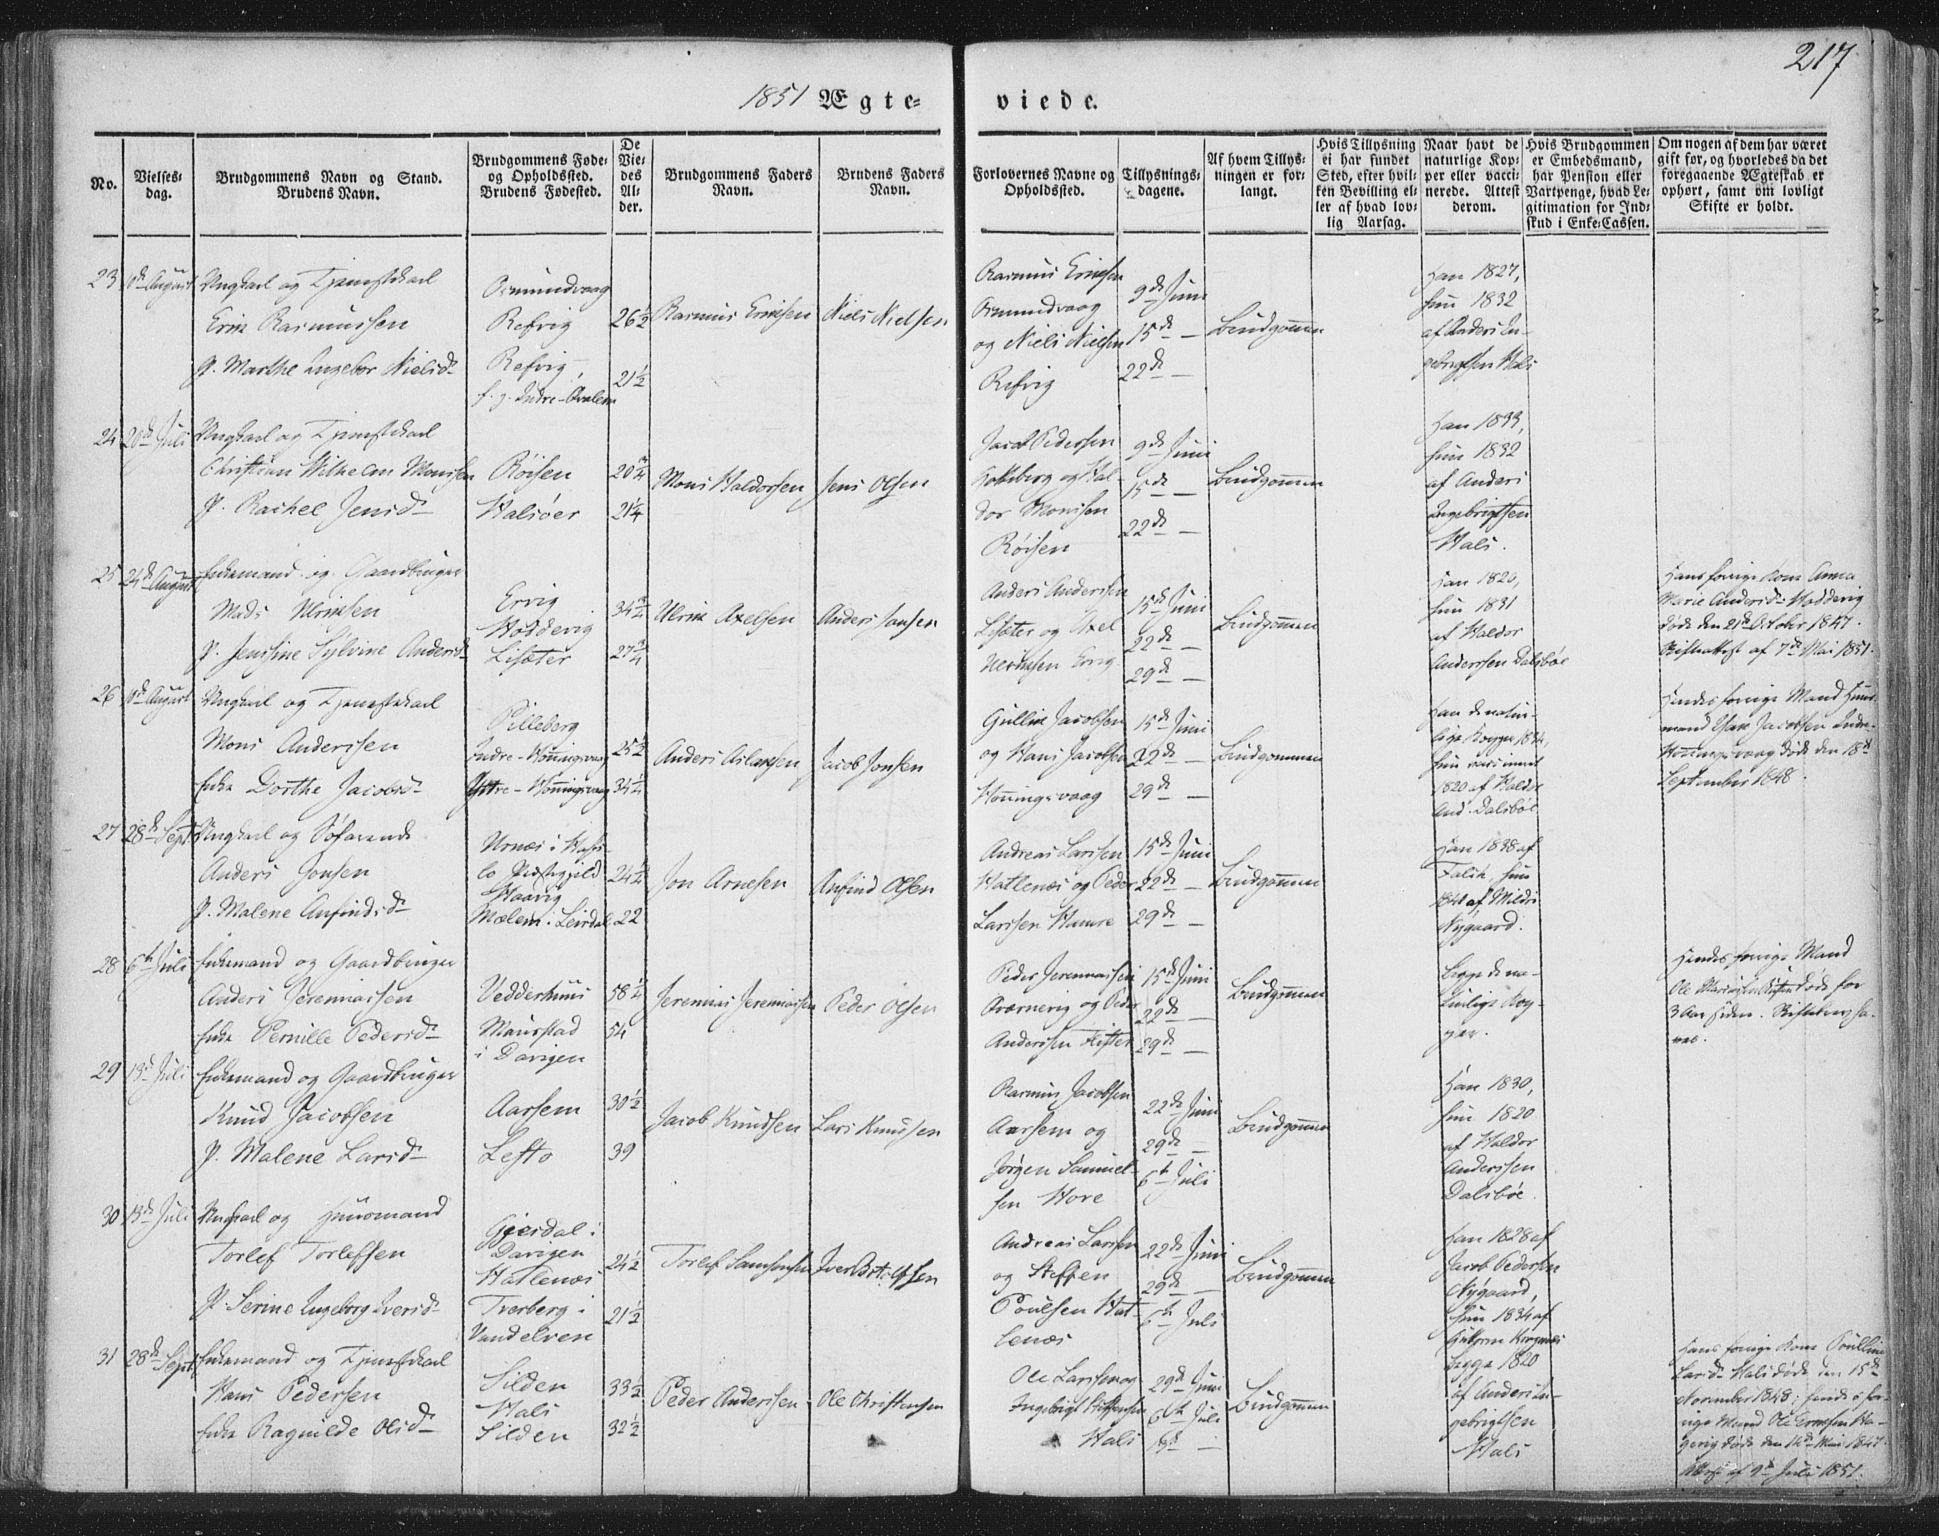 217
1851 Ægte- viede.
No.
Vielses-
dag.
Brudgommens Navn og Stand.
Brudens Navn.
Brudgommens Føde-
og Opholdssted.
Brudens Fødested.
De
Vie-
des
Al-
der.
Brudgommens Faders
Navn.
Brudens Faders
Navn.
Forlovernes Navne og
Opholdssted.
Tillysnings-
dagene.
Af hvem Tillys-
ningen er for-
langt.
Hvis Tillysning
ei har fundet
Sted, efter hvil-
ken Bevilling el-
ler af hvad lov-
lig Aarsag.
Naar havt de
naturlige Kop-
per eller vacci-
nerede. Attest
derom.
Hvis Brudgommen
er Embedsmand,
har Pension eller
Vartpenge, hvad Le-
gitimation for Ind-
skud i Enke-Cassen.
Om nogen af dem har været
gift før, og hvorledes da det
foregaaende Ægteskab er
ophørt, samt om lovligt
Skifte er holdt.
23
August
Ungkarl og Tjenestekarl
Erik Rasmussen
P. Marthe Ingebor Nielsd.
Osmundvaag
Refvig
Refvig,
26½
21½
Rasmus Eriksen
Niels Nielsen
Rasmus Eriksen
Osmundvaag
og Niels Nielsen
Refvig
9de Juni
15de —
22de —
Brudgommen
Han 1827,
hun 1832
af Anders In-
gebrigtsen Hals
24
20de Juli
Ungkarl og Tjenestekarl
Christian Wilhelm Monsen
P. Rachel Jensd.
Röisen
Halsöer
20¾
21¼
Mons Haldorsen
Jens Olsen
Jacob Pedersen
og Hal-
dor Monsen
Röisen
9de Juni
15de —
22de —
Brudgommen
Han 1833,
hun 1832
af Anders
Ingebrigtsen
Hals.
25
24de August
Enkemand og Gaardbruger
Mads Ulriksen
P. Jenssine Sylvine Andersd.
Ervig
Hoddevig
Lisæter
34¾
27¾
Ulrik Axelsen
Anders Jonsen
Anders Andersen
Lisæter og Axel
Ulriksen Ervig
15de Juni
22de —
29de —
Brudgommen
Han 1820,
hun 1831
af Haldor
Anderssen Dalsböe
Hans forrige Kone Anna
Marie Andersd. Hoddevig
döde den 21de October 1847.
Skifteattest af 7de Mai 1851.
26
August
Ungkarl og Tjenestekarl
Mons Anderssen
Enke Dorthe Jacobsd.
Pilleberg
Indre-Honningsvaag
Yttre-Honningsvaag
25½
34¼
Anders Aslaksen
Jacob Jonsen
Gullik Jacobsen
og Hans Jacobsen
Honningsvaag
15de Juni
22de —
29de —
Brudgommen
Han de natur-
lige Kopper
hun vaccineret
1820 af Haldor
And. Dalsböe
Hendes forrige Mand Huus-
mand Jacobsen Indre-
Honningsvaag döde den 18de
September 1848.
27
28de Sept.
Ungkarl og Söfarende
Anders Jonsen
P. Malene Anfindsd.
Urnæs i Hafs-
lo Præstegjeld
Maavig
24½
22
Jon Arnesen
Anfind Olsen
Andreas Larssen
Hatlenæs og Peder
Larssen
15de Juni
22de —
29de —
Brudgommen
Han 1838 af
hun
af
Nygaard.
28
6te Juli
Enkemand og Gaardbruger
Anders Jeremiassen
Enke Pernille Pedersd.
Vedderhuus
Maurstad
i Davigen
58¼
54
Jeremias Jeremiassen
Peder Olsen
Peder Jeremiassen
og Peder
Anderssen
15de Juni
22de —
29de —
Brudgommen
Begge de na-
turlige Kop-
per.
Hendes forrige Mand
Ole döde for
3 Aar siden.
29
13de Juli
Enkemand og Gaardbruger
Knud Jacobsen
P. Malene Larsd.
Aarsem
Lesto
30½
39
Jacob Knudsen
Lars Knudsen
Rasmus Jacobsen
Aarsem og
Jörgen Samuel-
sen Hove
22de Juni
29de —
6te Juli
Brudgommen
Han 1830,
hun 1820
af Haldor
Anderssen
Dalsböe.
30
13de Juli
Ungkarl og Huusmand
Torlef Torlefsen
P. Serine Ingeborg Iversd.
Gjerdal i
Davigen
Hatlenæs
Tverberg i
Vandelven
24½
21½
Torlef Samsonsen
Iver
Andreas Larssen
og Steffen
Poulsen Hat-
lenæs
22de Juni
29de —
6te Juli
Brudgommen
Han 1828 af
Jacob Pedersen
Nygaard,
hun 1834 af
31
28de Sept.
Enkemand og Tjenestekarl
Hans Pedersen
Enke Ragnilde Olsd.
Silden
Hals
Silden
33½
32½
Peder Anderssen
Ole Christensen
Ole Larssen og
Ingebrigt Steffensen
Hals
29de Juni
6te Juli
13de —
Brudgommen
Begge 1820
af Anders In-
gebrigtsen
Hals
Hans forrige Kone Poulline
Larsd. Hals döde den 15de
November 1848; hendes for-
rige Mand Ole
döde den 14de Mai 1847.
af 9de Juli 1851.